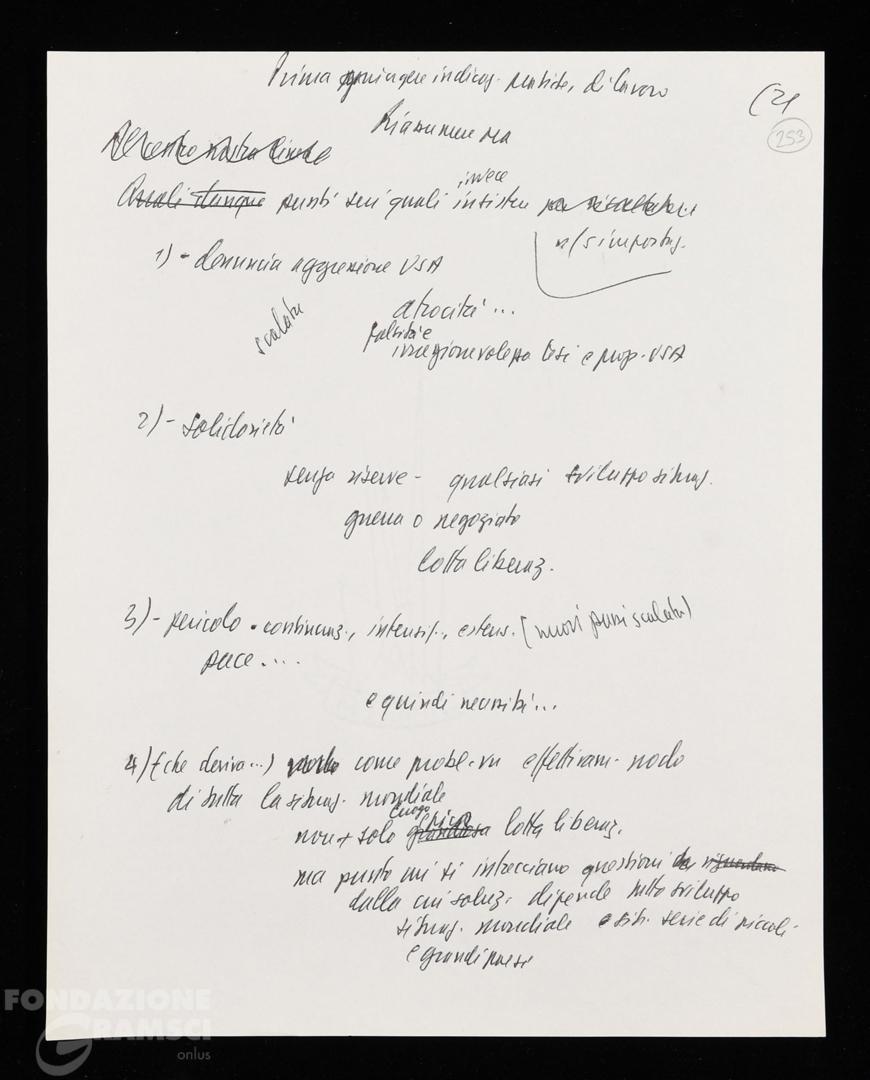 Prima giungere indicaz. pratiche, di lavoro
(21
253
Riassumere ma
Al centro nostra linea
Quali dunque punti sui quali invece insistere
n/s importaz.
1) - denuncia aggressione USA
scalata
atrocità ...
falsità e
irragionevolezza tesi e prop. USA
2) - solidarietà
senza riserve - qualsiasi sviluppo situaz.
guerra o negoziato
lotta liberaz.
3) - pericolo • continuaz., intensif., estens. (nuovi passi scalata)
pace ....
e quindi necessità ...
4) (che deriva ...) come probl. vn effettivam. nodo
di tutta la situaz. mondiale
non + solo luogo epico grandiosa lotta liberaz.
ma punto cui si intrecciano questioni da riguardano
dalla cui soluz. dipende tutto sviluppo
situaz. mondiale e sit. serie di piccoli
e grandi paesi
FONDAZIONE
GRAMSCI
onlus